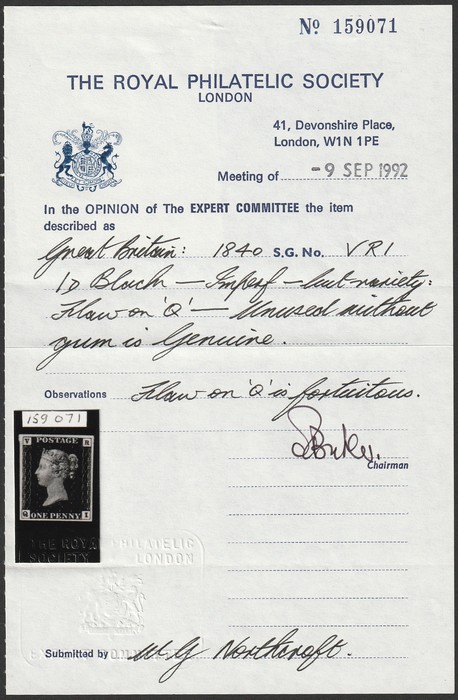 No 159071
THE ROYAL PHILATELIC SOCIETY
LONDON
41, Devonshire Place,
London, W1N 1PE
Meeting of -9 SEP 1992
In the OPINION of The EXPERT COMMITTEE the item
described as
Great Britain: 1840 S.G. No. VR1
1D Black — Imperf — but variety:
Flaw on 'Q' — Unused without
gum is Genuine.
Observations Flaw on 'Q' is fortuitous.
Chairman
159 071
V POSTAGE R
Q ONE PENNY I
THE ROYAL PHILATELIC
SOCIETY LONDON
Submitted by W G Northcroft.